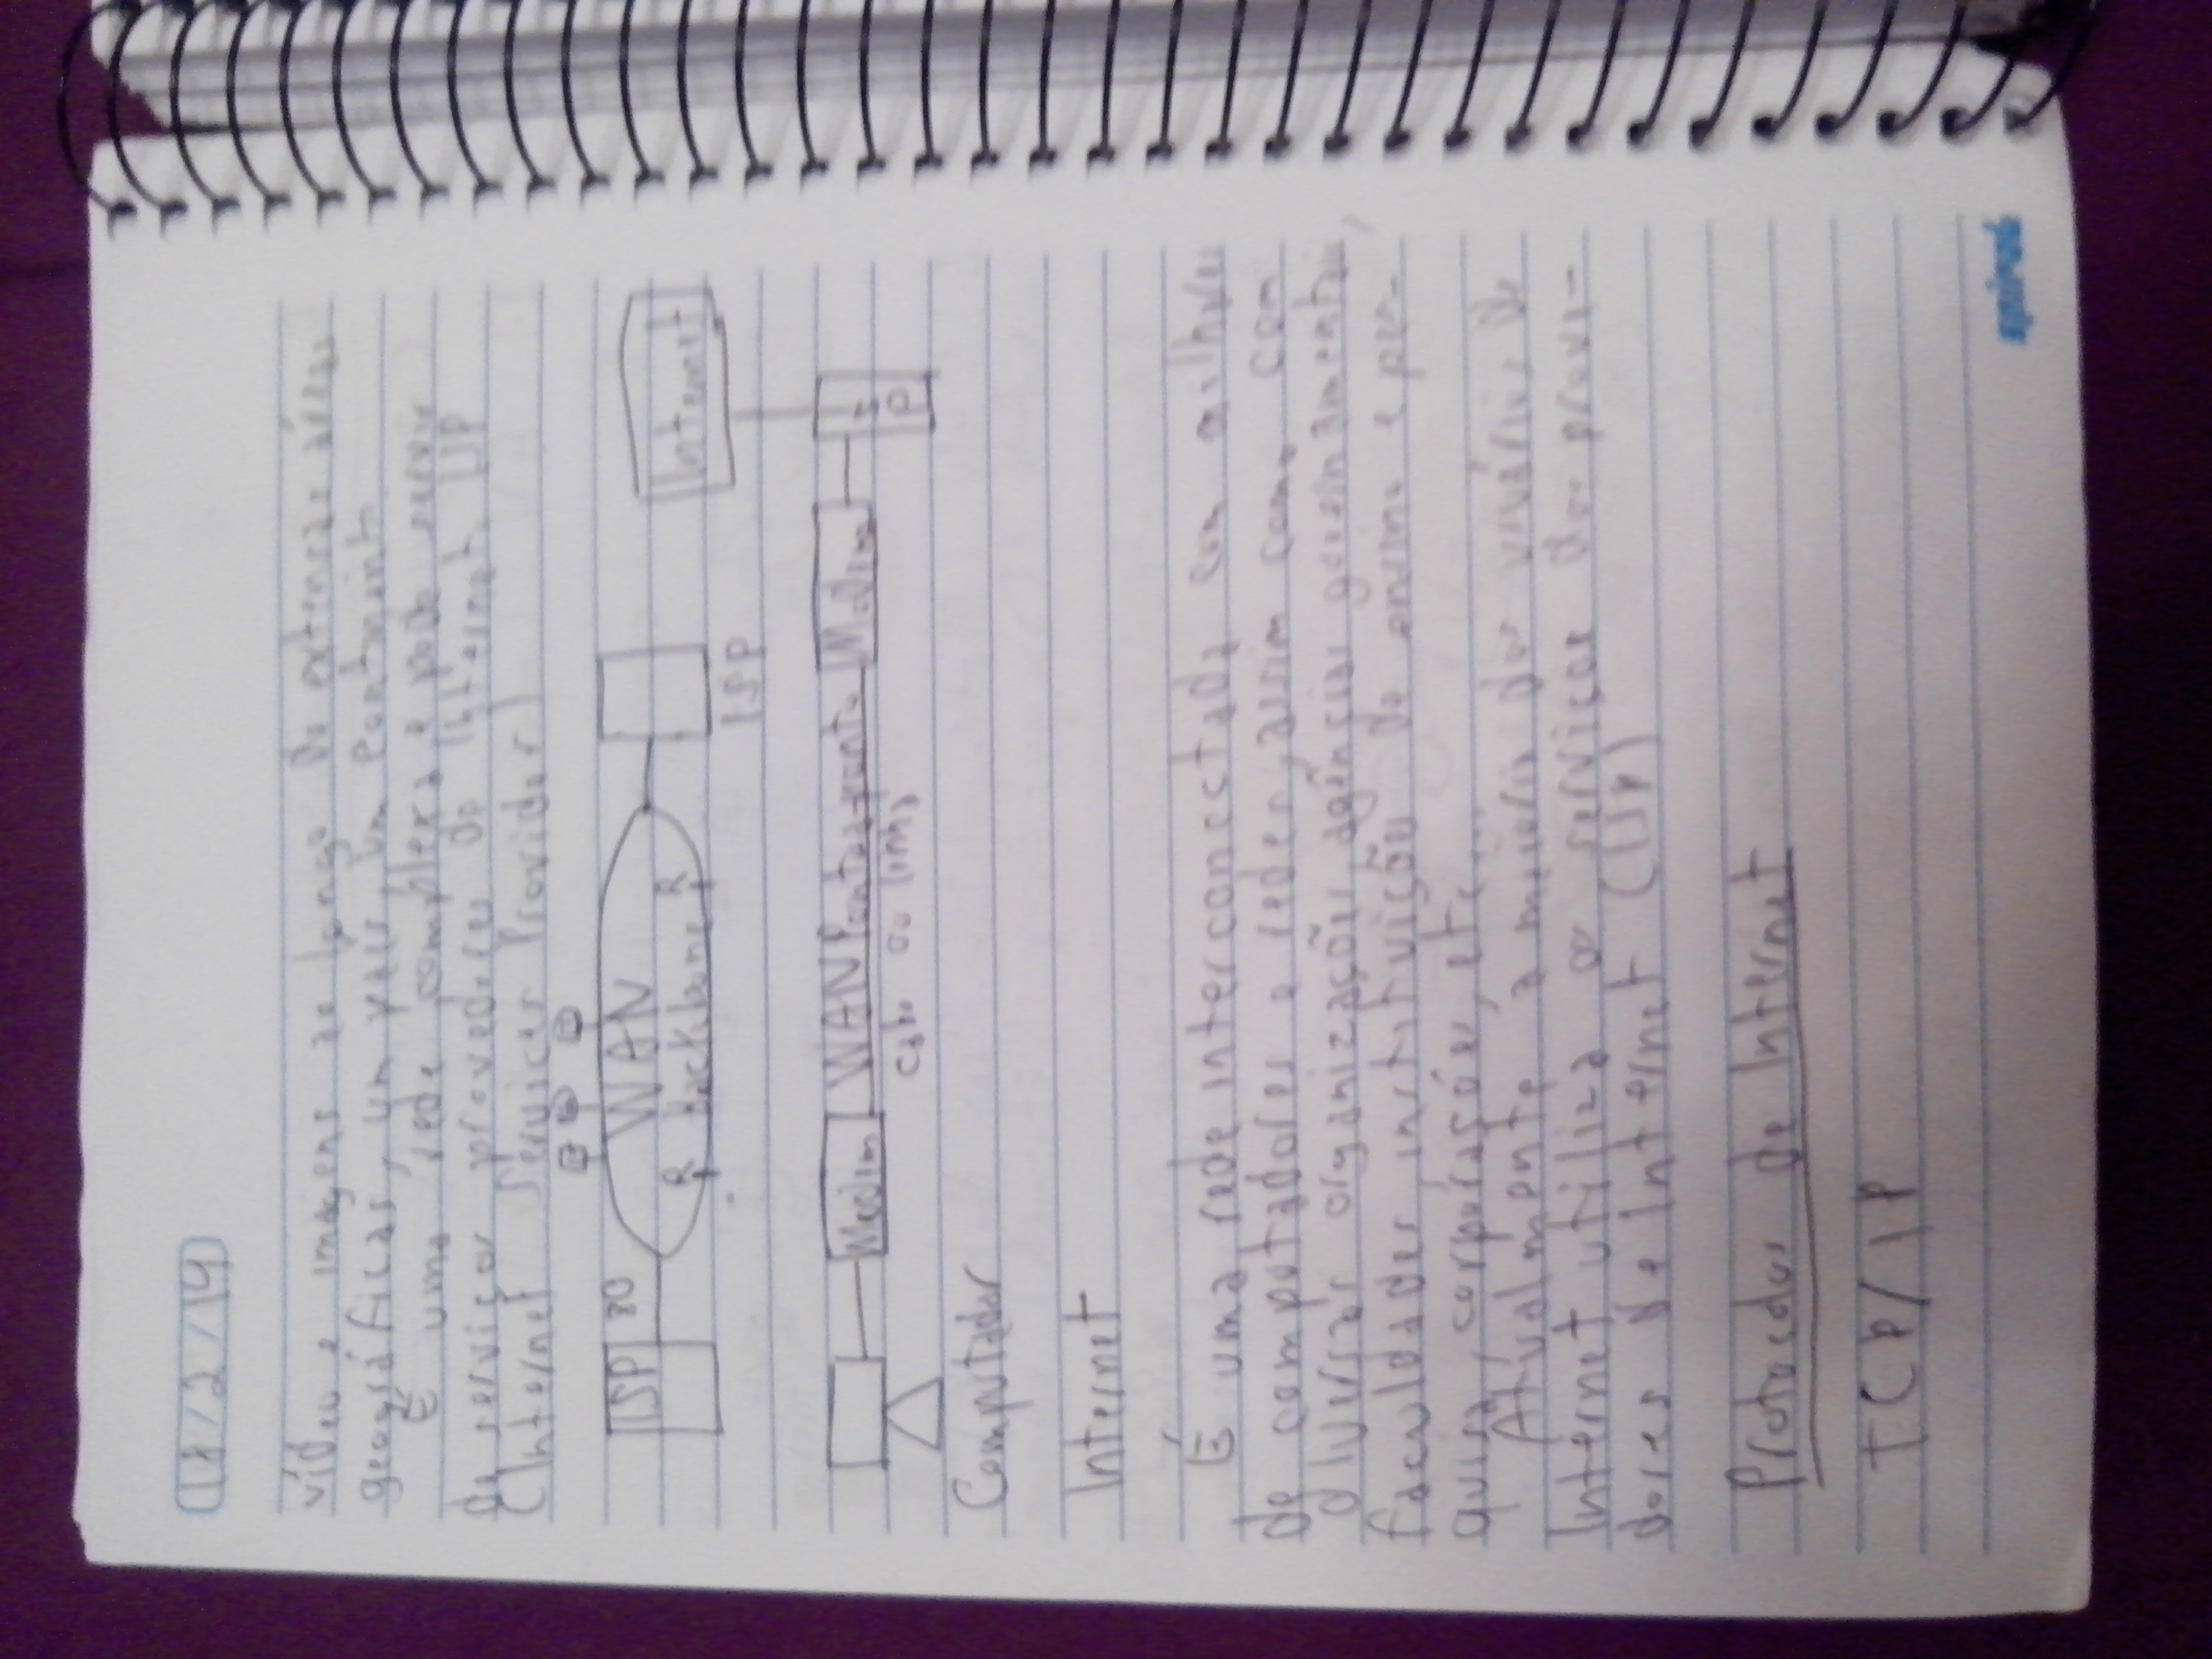 18/2/19
vídeo e imagens ao longo de extensas áreas
geográficas, um país, um continente
É uma rede complexa e pode servir
de serviços provedores de Internet. ISP
(Internet Services Provider)
ISP 80 WAN
R Backbone R Internet
ISP
Modem WAN Ponto-a-ponto Modem ISP
cabo ou linha
Computador
Internet
É uma rede interconectada com milhares
de computadores e redes, assim como com
diversas organizações, agências governamentais,
faculdades, instituições de ensino e pes-
quisa, corporações, etc...
Atualmente a maioria dos usuários de
Internet utiliza os serviços dos prove-
dores de Internet (ISP)
Protocolos de Internet
TCP/IP
spiral